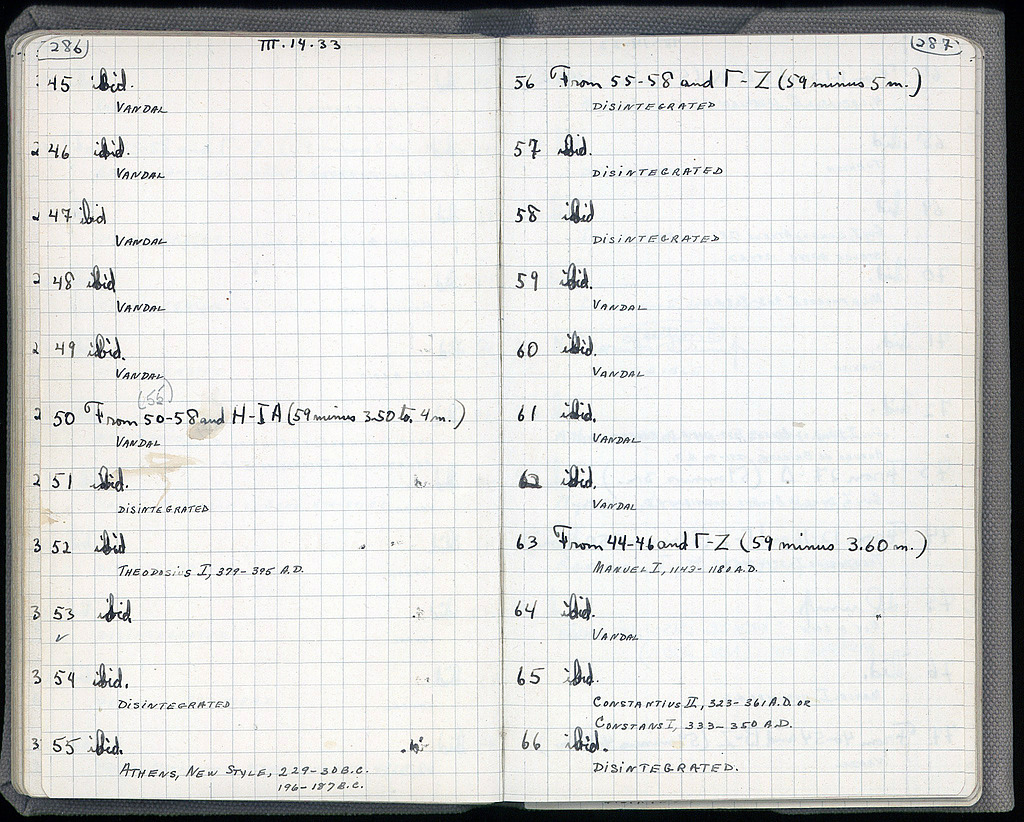 286
III.14.33
45 ibid.
VANDAL
2 46 ibid.
VANDAL
2 47 ibid
VANDAL
2 48 ibid
VANDAL
2 49 ibid.
VANDAL
(55)
2 50 From 50-58 and H-IA (59 minus 3.50 to 4 m.)
VANDAL
2 51 ibid.
DISINTEGRATED
3 52 ibid
THEODOSIUS I, 379-395 A.D.
3 53 ibid.
✓
3 54 ibid.
DISINTEGRATED
3 55 ibid.
ATHENS, NEW STYLE, 229-30 B.C.
196-187 B.C.
287
56 From 55-58 and Γ-Z (59 minus 5 m.)
DISINTEGRATED
57 ibid.
DISINTEGRATED
58 ibid
DISINTEGRATED
59 ibid.
VANDAL
60 ibid.
VANDAL
61 ibid.
VANDAL
62 ibid.
VANDAL
63 From 44-46 and Γ-Z (59 minus 3.60 m.)
MANUEL I, 1143-1180 A.D.
64 ibid.
VANDAL
65 ibid.
CONSTANTIUS II, 323-361 A.D. OR
CONSTANS I, 333-350 A.D.
66 ibid.
DISINTEGRATED.